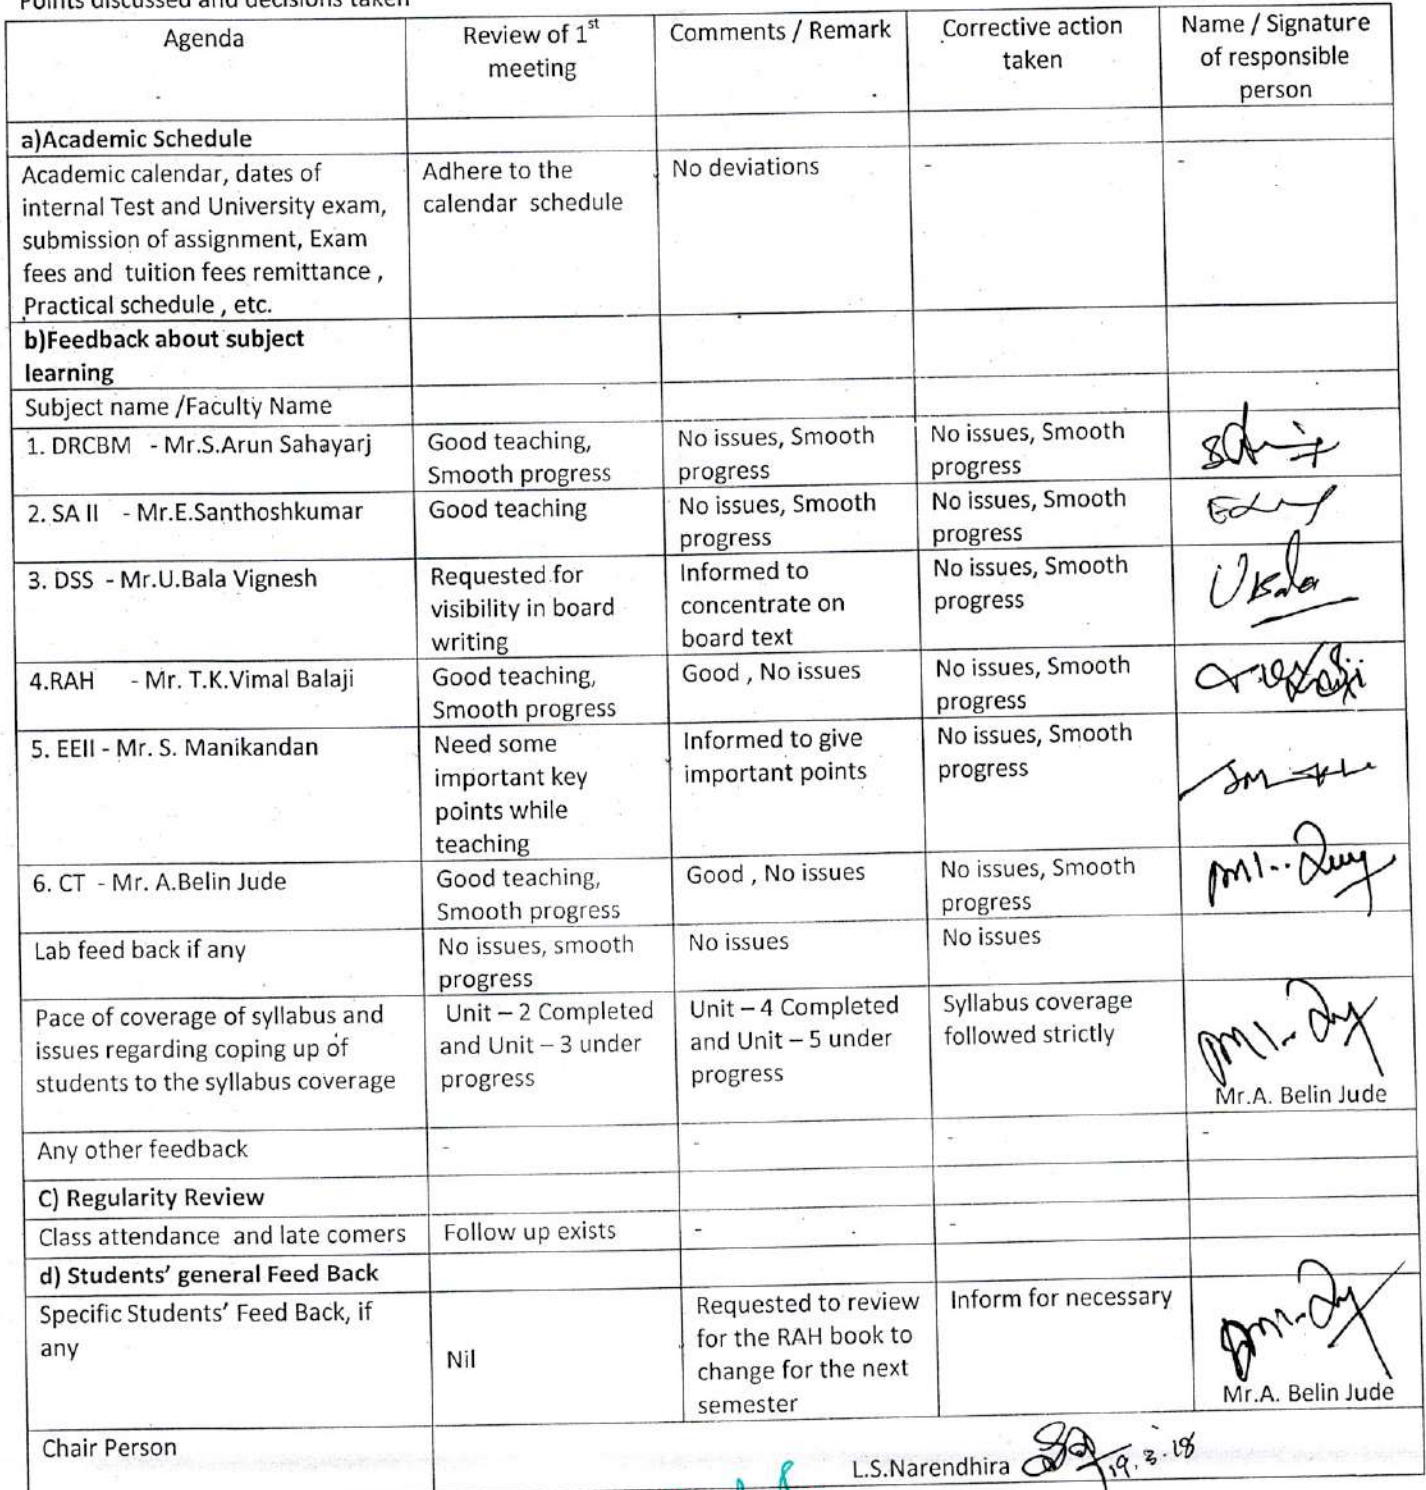 Points discussed and decisions taken
Agenda
Review of 1st
meeting
Comments / Remark
Corrective action
taken
Name / Signature
of responsible
person
a)Academic Schedule
Academic calendar, dates of
internal Test and University exam,
submission of assignment, Exam
fees and tuition fees remittance ,
Practical schedule , etc.
Adhere to the
calendar schedule
No deviations
-
-
b)Feedback about subject
learning
Subject name /Faculty Name
1. DRCBM - Mr.S.Arun Sahayarj
Good teaching,
Smooth progress
No issues, Smooth
progress
No issues, Smooth
progress
2. SA II - Mr.E.Santhoshkumar
Good teaching
No issues, Smooth
progress
No issues, Smooth
progress
3. DSS - Mr.U.Bala Vignesh
Requested for
visibility in board
writing
Informed to
concentrate on
board text
No issues, Smooth
progress
UBala
4.RAH - Mr. T.K.Vimal Balaji
Good teaching,
Smooth progress
Good , No issues
No issues, Smooth
progress
5. EEII - Mr. S. Manikandan
Need some
important key
points while
teaching
Informed to give
important points
No issues, Smooth
progress
6. CT - Mr. A.Belin Jude
Good teaching,
Smooth progress
Good , No issues
No issues, Smooth
progress
Lab feed back if any
No issues, smooth
progress
No issues
No issues
Pace of coverage of syllabus and
issues regarding coping up of
students to the syllabus coverage
Unit – 2 Completed
and Unit – 3 under
progress
Unit – 4 Completed
and Unit – 5 under
progress
Syllabus coverage
followed strictly
Mr.A. Belin Jude
Any other feedback
-
-
-
-
C) Regularity Review
Class attendance and late comers
Follow up exists
-
-
d) Students' general Feed Back
Specific Students' Feed Back, if
any
Nil
Requested to review
for the RAH book to
change for the next
semester
Inform for necessary
Mr.A. Belin Jude
Chair Person
L.S.Narendhira
19.3.18